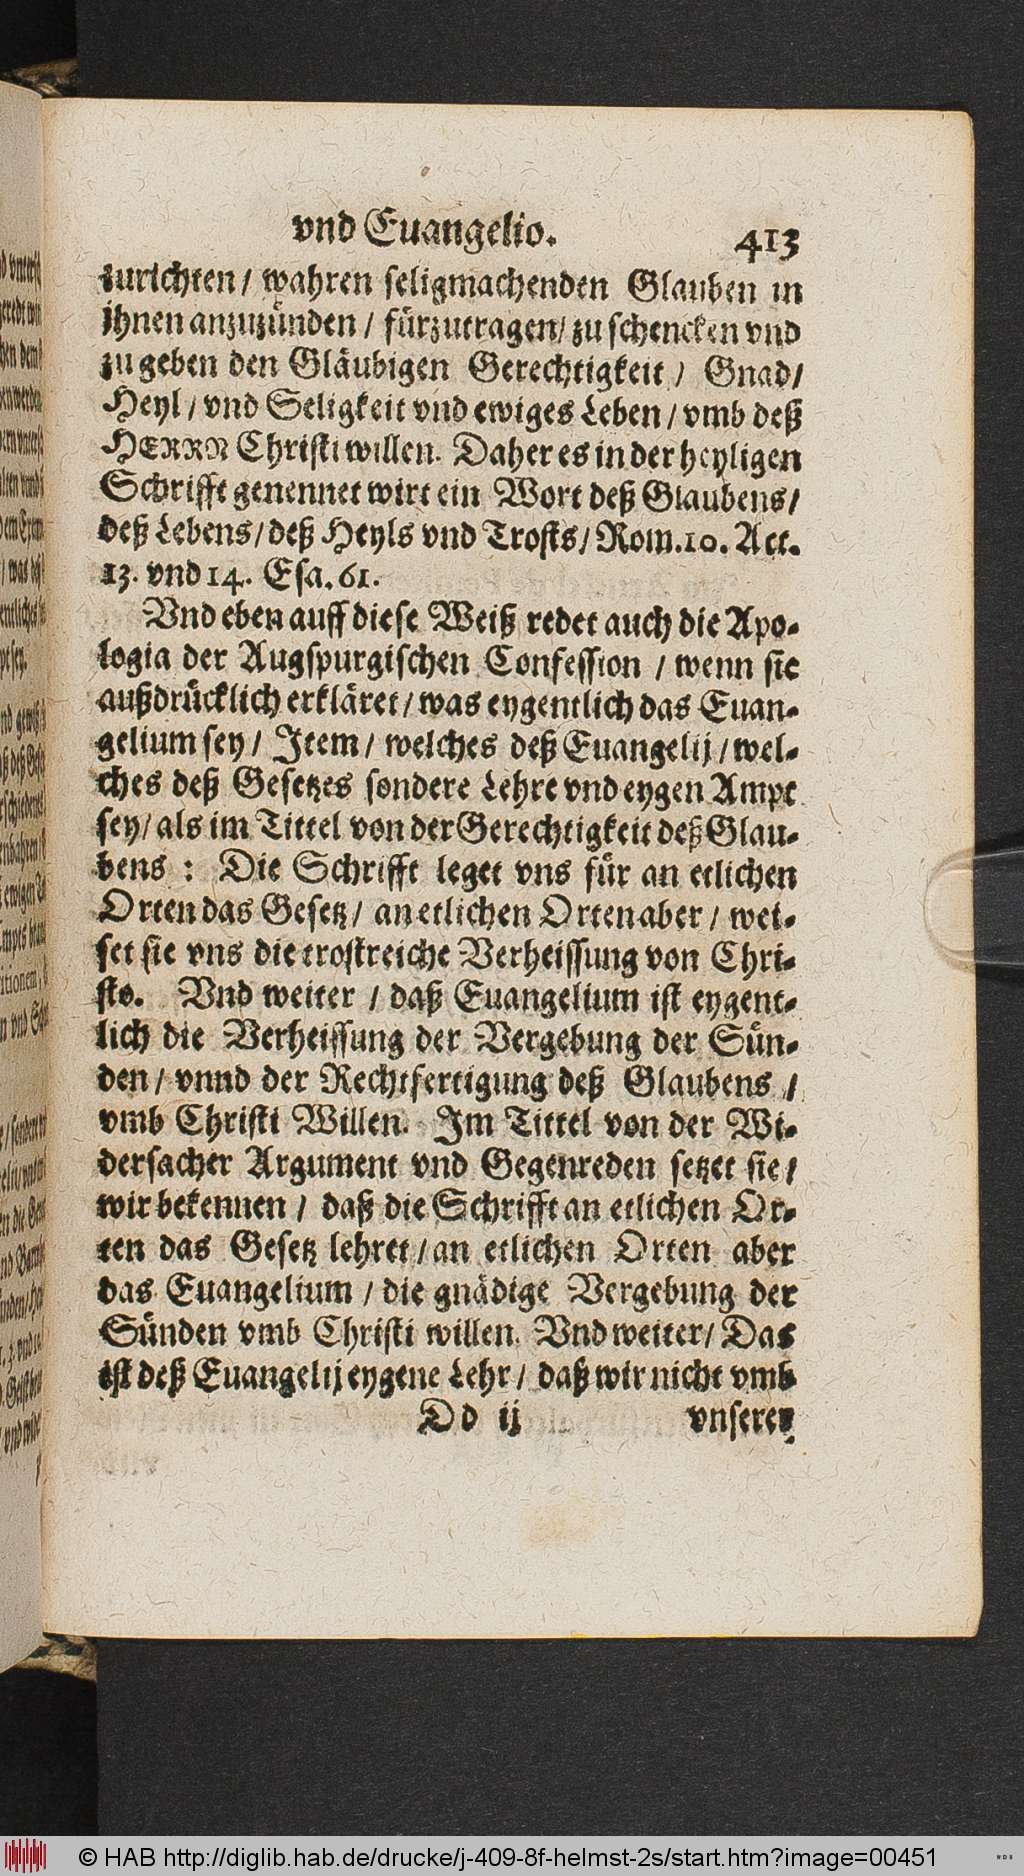 vnd Euangelio. 413
zurichten / wahren seligmachenden Glauben in
ihnen anzuzünden / fürzutragen / zu schencken vnd
zu geben den Gläubigen Gerechtigkeit / Gnad /
Heyl / vnd Seligkeit vnd ewiges Leben / vmb deß
HERRN Christi willen. Daher es in der heyligen
Schrifft genennet wirt ein Wort deß Glaubens /
deß Lebens / deß Heyls vnd Trosts / Rom. 10. Act.
13. vnd 14. Esa. 61.
Vnd eben auff diese Weiß redet auch die Apo-
logia der Augspurgischen Confession / wenn sie
außdrücklich erkläret / was eygentlich das Euan-
gelium sey / Item / welches deß Euangelij / wel-
ches deß Gesetzes sondere Lehre vnd eygen Ampt
sey / als im Tittel von der Gerechtigkeit deß Glau-
bens : Die Schrifft leget vns für an etlichen
Orten das Gesetz / an etlichen Orten aber / wei-
set sie vns die trostreiche Verheissung von Chri-
sto. Vnd weiter / daß Euangelium ist eygent-
lich die Verheissung der Vergebung der Sün-
den / vnnd der Rechtfertigung deß Glaubens /
vmb Christi Willen. Im Tittel von der Wi-
dersacher Argument vnd Gegenreden setzet sie /
wir bekennen / daß die Schrifft an etlichen Or-
ten das Gesetz lehret / an etlichen Orten aber
das Euangelium / die gnädige Vergebung der
Sünden vmb Christi willen. Vnd weiter / Das
ist deß Euangelij eygene Lehr / daß wir nicht vmb
Dd ij vnserer
© HAB http://diglib.hab.de/drucke/j-409-8f-helmst-2s/start.htm?image=00451